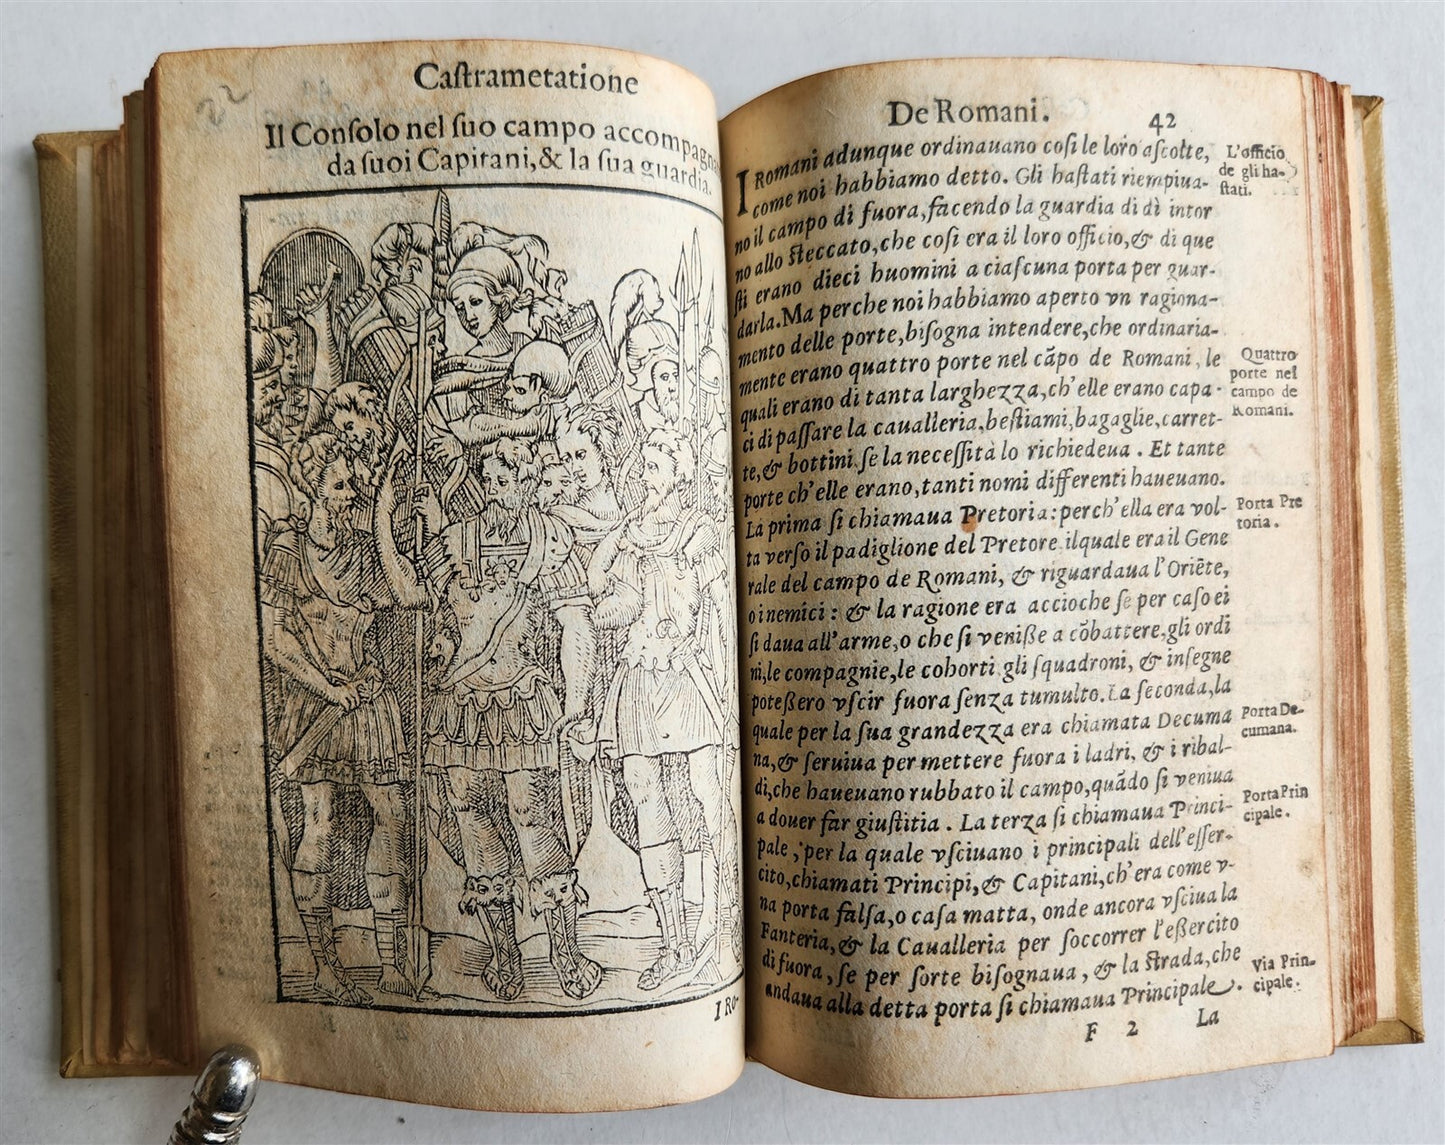 22
Caſtrametatione
Il Conſolo nel ſuo campo accompagna
da ſuoi Capitani, & la ſua guardia.
I RO-
De Romani. 42
I Romani adunque ordinauano coſi le loro aſcolte,
come noi habbiamo detto. Gli haſtati riempiua-
no il campo di fuora, facendo la guardia di dì intor
no allo ſteccato, che coſi era il loro officio, & di que
ſti erano dieci huomini a ciaſcuna porta per guar-
darla. Ma perche noi habbiamo aperto vn ragiona-
mento delle porte, biſogna intendere, che ordinaria-
mente erano quattro porte nel cãpo de Romani, le
quali erano di tanta larghezza, ch'elle erano capa-
ci di paſſare la caualleria, beſtiami, bagaglie, carret-
te, & bottini ſe la neceſſità lo richiedeua. Et tante
porte ch'elle erano, tanti nomi differenti haueuano.
La prima ſi chiamaua Pretoria: perch'ella era vol-
ta verſo il padiglione del Pretore ilquale era il Gene
rale del campo de Romani, & riguardaua l'Oriẽte,
o inemici: & la ragione era accioche ſe per caſo ei
ſi daua all'arme, o che ſi veniſſe a cõbattere, gli ordi
ni, le compagnie, le cohorti gli ſquadroni, & inſegne
poteſſero vſcir fuora ſenza tumulto. La ſeconda, la
quale per la ſua grandezza era chiamata Decuma
na, & ſeruiua per mettere fuora i ladri, & i ribal-
di, che haueuano rubbato il campo, quãdo ſi veniua
a douer far giuſtitia. La terza ſi chiamaua Princi-
pale, per la quale vſciuano i principali dell'eſſer-
cito, chiamati Principi, & Capitani, ch'era come v-
na porta falſa, o caſa matta, onde ancora vſciua la
Fanteria, & la Caualleria per ſoccorrer l'eſſercito
di fuora, ſe per ſorte biſognaua, & la ſtrada, che
andaua alla detta porta ſi chiamaua Principale.
F 2 La
L'officio
de gli ha-
ſtati.
Quattro
porte nel
campo de
Romani.
Porta Pre
toria.
Porta De-
cumana.
Porta Prin
cipale.
Via Prin-
cipale.